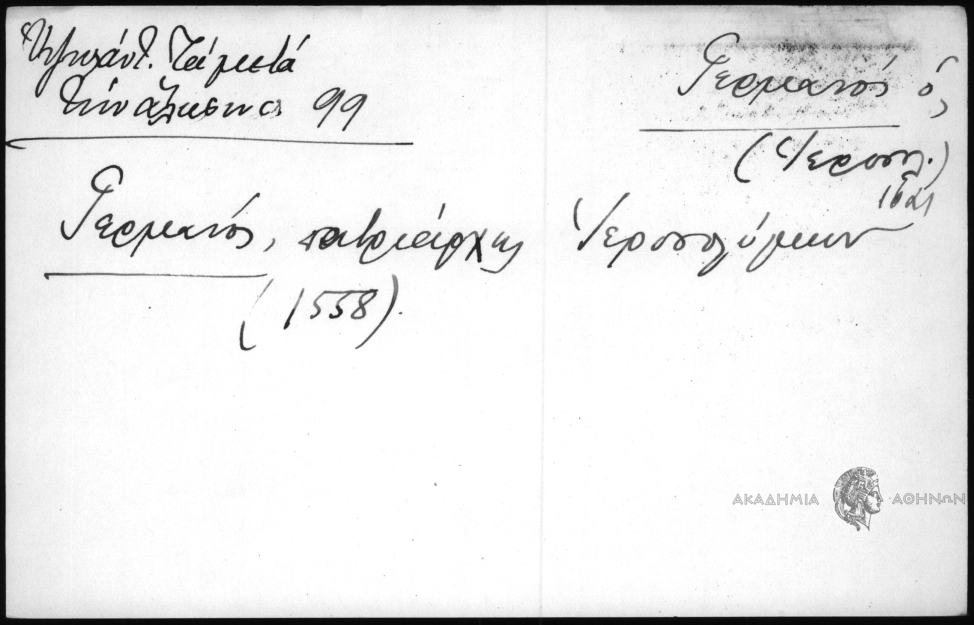 Ὑψηλάντ. Τὰ μετὰ
τὴν ἅλωσιν σ. 99
Γερμανὸς ὁ,
(Ἱεροσολ.)
Γερμανός, πατριάρχης Ἱεροσολύμων
(1558).
ΑΚΑΔΗΜΙΑ ΑΘΗΝΩΝ